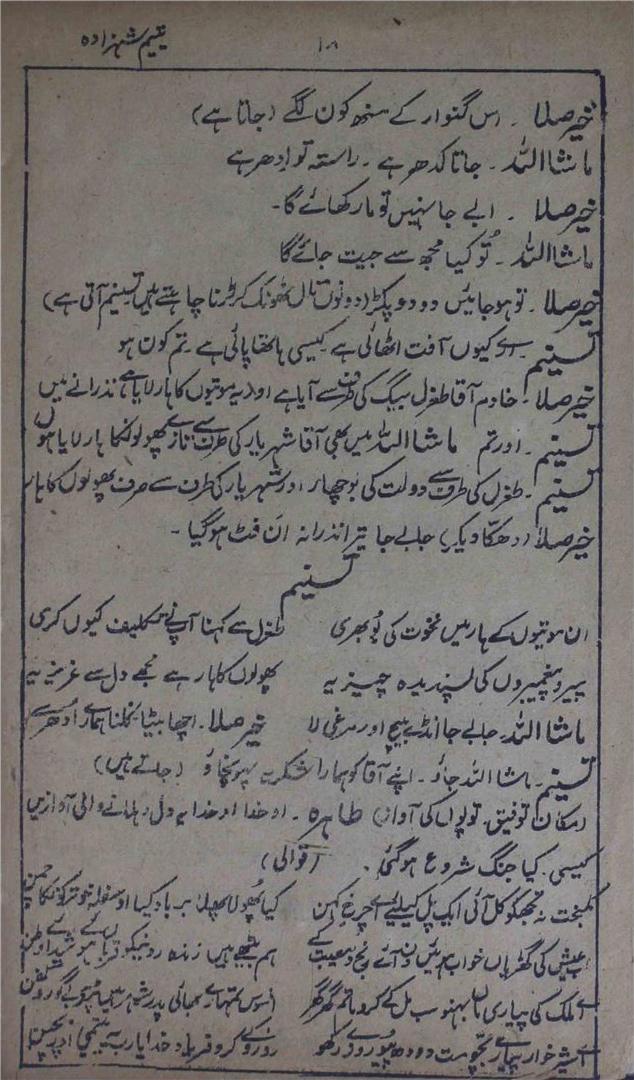 یتیم شہزادہ
۱۸
خیر صلا ۔ اس گنوار کے منھ کون لگے (جاتا ہے)
ماشااللہ ۔ جاتا کدھر ہے ۔ راستہ تو ادھر ہے
خیر صلا ۔ ابے جا نہیں تو مار کھائے گا ۔
ماشااللہ ۔ تُو کیا مجھ سے جیت جائے گا
خیر صلا ۔ تو ہو جائیں دو دو پکڑ (دونوں تال ٹھونک کر لڑنا چاہتے ہیں تسنیم آتی ہے)
تسنیم ۔ ارے کیوں آفت اٹھائی ہے کیسی ہاتھا پائی ہے ۔ تم کون ہو
خیر صلا ۔ خادم آقا طغرل بیگ کی طرف سے آیا ہے اور یہ موتیوں کا ہار لایا ہے نذرانے میں
تسنیم ۔ اور تم ماشااللہ میں بھی آقا شہریار کی طرف سے تازے پھولونکا ہار لایا ہوں
تسنیم ۔ طغرل کی طرف سے دولت کی بوچھار اور شہریار کی طرف سے صرف پھولوں کا ہار
خیر صلا (دھکّا دیکر) جا بے جا تیرا نذرانہ ان فٹ ہو گیا ۔
تسنیم
ان موتیوں کے ہار میں نخوت کی بُو بھری طغرل سے کہنا آپ نے تکلیف کیوں کری
پیر و پیغمبروں کی پسندیدہ چیز یہ پھولوں کا ہار ہے مجھے دل سے عزیز یہ
ماشااللہ ۔ جا بے جا انڈے بیچ اور مرغی لا خیر صلا ۔ اچھا بیٹا نکلنا ہمارے اُدھر سے
تسنیم ۔ ماشااللہ جاؤ ۔ اپنے آقا کو ہمارا شکریہ پہونچاؤ (جاتے ہیں)
(مکان توفیق ۔ توپوں کی آواز) طاہرہ ۔ او خدا او خدا یہ دل دہلانے والی آوازیں
کیسی ۔ کیا جنگ شروع ہو گئی ۔ (قوالی)
کمبخت نہ تجھکو کل آئی ایک پل کیلئے اے چرخ کہن کیا پُھولا پھلا برباد کیا او سفلہ چمن
اب عیش کی گھڑیاں خواب ہوئیں دن آئے رنج و مصیبت کے ہم بیٹھے ہیں زندہ رونیکو قرباں ہوئے شیدائے وطن
اے ملک کی پیاری ماں بہنو سب مل کے کرو ماتم گھر گھر افسوس تمہارے بھائی پدر شوہر
اے شیر خوار پیارے بچو مت دودھ پیو روزے رکھو رو رو کے کرو فریاد خدا یا رب یتیمی